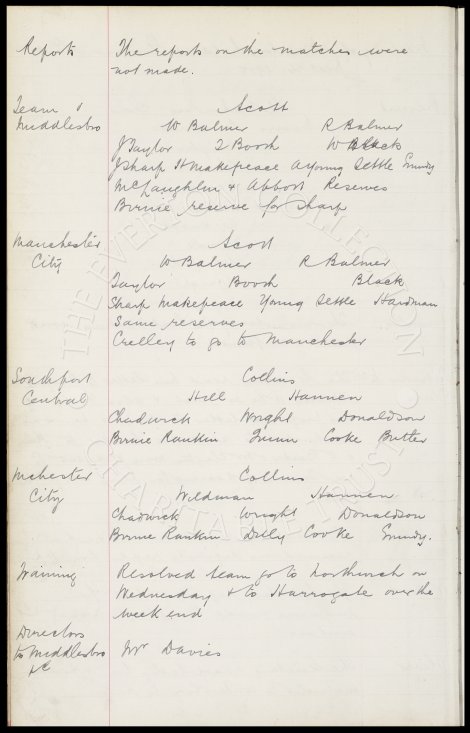 Reports The reports on the matches were
not made.
Team v Scott
Middlesbro W Balmer R Balmer
J Taylor T Booth W Black
J Sharp H Makepeace A Young Settle Grundy
McLaughlin & Abbott Reserves
Birnie reserve for Sharp
Manchester Scott
City W Balmer R Balmer
Taylor Booth Black
Sharp Makepeace Young Settle Hardman
Same reserves
Crelley to go to Manchester
Southport Collins
Central Hill Hannen
Chadwick Wright Donaldson
Birnie Rankin Cooke Butler
Mchester Collins
City Wildman Hannen
Chadwick Wright Donaldson
Birnie Rankin Dilly Cooke Grundy.
Training Resolved team go to Northwich on
Wednesday & to Harrogate over the
week end
Directors
to Middlesbro Mr Davies
&c
THE EVERTON COLLECTION
CHARITABLE TRUST